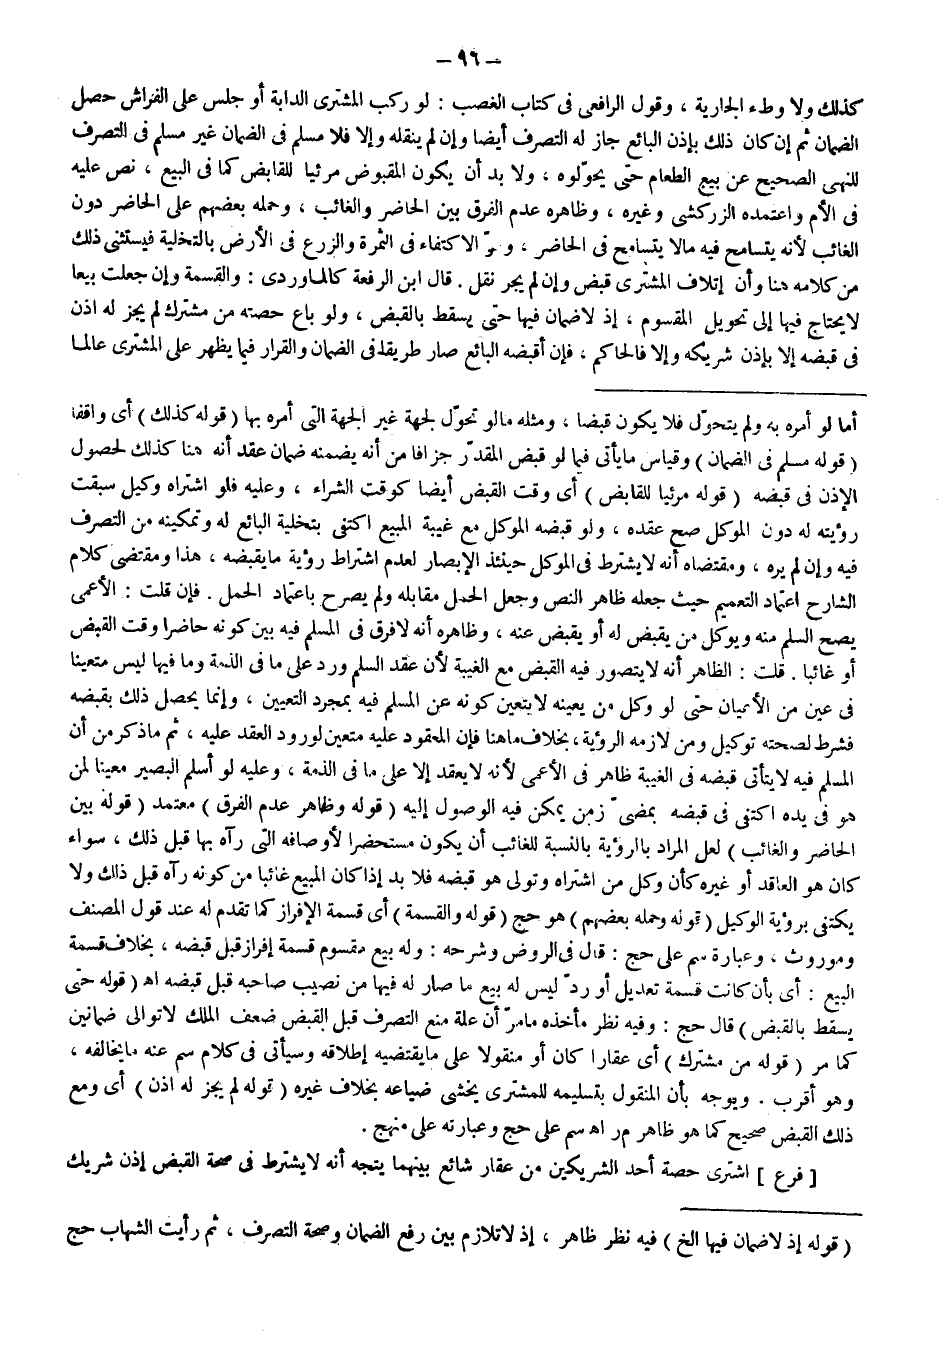 — ٩٦ —
كذلك ولا وطء الجارية ، وقول الرافعى فى كتاب الغصب : لو ركب المشترى الدابة أو جلس على الفراش حصل
الضمان ثم إن كان ذلك بإذن البائع جاز له التصرف أيضا وإن لم ينقله وإلا فلا مسلم فى الضمان غير مسلم فى التصرف
للنهى الصحيح عن بيع الطعام حتى يحوّلوه ، ولا بد أن يكون المقبوض مرئيا للقابض كما فى البيع ، نص عليه
فى الأم واعتمده الزركشى وغيره ، وظاهره عدم الفرق بين الحاضر والغائب ، وحمله بعضهم على الحاضر دون
الغائب لأنه يتسامح فيه مالا يتسامح فى الحاضر ، و الاكتفاء فى الثمرة والزرع فى الأرض بالتخلية فيستثنى ذلك
من كلامه هنا وأن إتلاف المشترى قبض وإن لم يجر نقل . قال ابن الرفعة كالماوردى : والقسمة وإن جعلت بيعا
لايحتاج فيها إلى تحويل المقسوم ، إذ لاضمان فيها حتى يسقط بالقبض ، ولو باع حصته من مشترك لم يجز له اذن
فى قبضه إلا بإذن شريكه وإلا فالحاكم ، فإن أقبضه البائع صار طريقا فى الضمان والقرار فيما يظهر على المشترى عالما
أما لو أمره به ولم يتحوّل فلا يكون قبضا ، ومثله مالو تحوّل لجهة غير الجهة التى أمره بها ( قوله كذلك ) أى واقفا
( قوله مسلم فى الضمان ) وقياس مايأتى فيما لو قبض المقدّر جزافا من أنه يضمنه ضمان عقد أنه هنا كذلك لحصول
الإذن فى قبضه ( قوله مرئيا للقابض ) أى وقت القبض أيضا كوقت الشراء ، وعليه فلو اشتراه وكيل سبقت
رؤيته له دون الموكل صح عقده ، ولو قبضه الموكل مع غيبة المبيع اكتفى بتخلية البائع له وتمكينه من التصرف
فيه وإن لم يره ، ومقتضاه أنه لايشترط فى الموكل حينئذ الإبصار لعدم اشتراط رؤية مايقبضه ، هذا ومقتضى كلام
الشارح اعتماد التعميم حيث جعله ظاهر النص وجعل الحمل مقابله ولم يصرح باعتماد الحمل . فإن قلت : الأعمى
يصح السلم منه ويوكل من يقبض له أو يقبض عنه ، وظاهره أنه لافرق فى المسلم فيه بين كونه حاضرا وقت القبض
أو غائبا . قلت : الظاهر أنه لايتصور فيه القبض مع الغيبة لأن عقد السلم ورد على ما فى الذمة وما فيها ليس متعينا
فى عين من الأعيان حتى لو وكل من يعينه لايتعين كونه عن المسلم فيه بمجرد التعيين ، وإنما يحصل ذلك بقبضه
فشرط لصحته توكيل ومن لازمه الرؤية، بخلاف ماهنا فإن المعقود عليه متعين لورود العقد عليه ، ثم ماذكر من أن
المسلم فيه لايتأتى قبضه فى الغيبة ظاهر فى الأعمى لأنه لايعقد إلا على ما فى الذمة ، وعليه لو أسلم البصير معينا لمن
هو فى يده اكتفى فى قبضه بمضىّ زمن يمكن فيه الوصول إليه ( قوله وظاهر عدم الفرق ) معتمد ( قوله بين
الحاضر والغائب ) لعل المراد بالرؤية بالنسبة للغائب أن يكون مستحضرا لأوصافه التى رآه بها قبل ذلك ، سواء
كان هو العاقد أو غيره كأن وكل من اشتراه وتولى هو قبضه فلا بد إذا كان المبيع غائبا من كونه رآه قبل ذلك ولا
يكتفى برؤية الوكيل ( قوله وحمله بعضهم ) هو حج ( قوله والقسمة ) أى قسمة الإفراز كما تقدم له عند قول المصنف
وموروث ، وعبارة سم على حج : قال فى الروض وشرحه : وله بيع مقسوم قسمة إفراز قبل قبضه ، بخلاف قسمة
البيع : أى بأن كانت قسمة تعديل أو ردّ ليس له بيع ما صار له فيها من نصيب صاحبه قبل قبضه اه ( قوله حتى
يسقط بالقبض ) قال حج : وفيه نظر مأخذه مامرّ أن علة منع التصرف قبل القبض ضعف الملك لاتوالى ضمانين
كما مر ( قوله من مشترك ) أى عقارا كان أو منقولا على مايقتضيه إطلاقه وسيأتى فى كلام سم عنه مايخالفه ،
وهو أقرب . ويوجه بأن المنقول بتسليمه للمشترى يخشى ضياعه بخلاف غيره ( قوله لم يجز له اذن ) أى ومع
ذلك القبض صحيح كما هو ظاهر م ر اه سم على حج وعبارته على منهج .
[ فرع ] اشترى حصة أحد الشريكين من عقار شائع بينهما يتجه أنه لايشترط فى صحة القبض إذن شريك
( قوله إذ لاضمان فيها الخ ) فيه نظر ظاهر ، إذ لاتلازم بين رفع الضمان وصحة التصرف ، ثم رأيت الشهاب حج